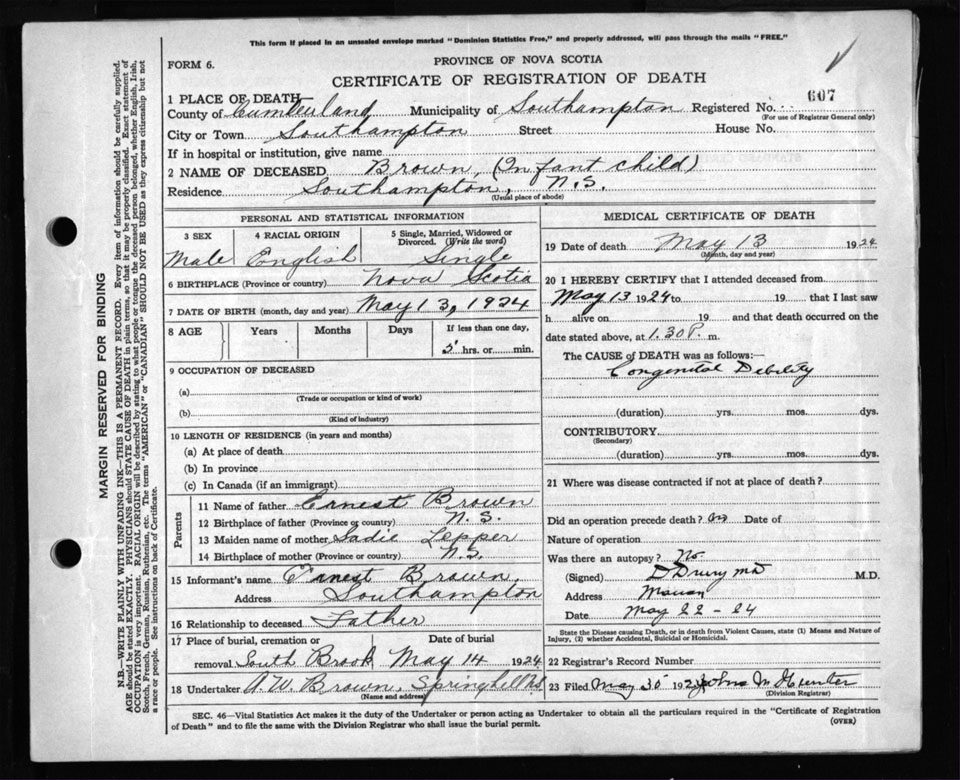 This form if placed in an unsealed envelope marked "Dominion Statistics Free," and properly addressed, will pass through the mails "FREE."
FORM 6.
PROVINCE OF NOVA SCOTIA
CERTIFICATE OF REGISTRATION OF DEATH
1 PLACE OF DEATH
607
County of Cumberland Municipality of Southampton Registered No.
(For use of Registrar General only)
City or Town Southampton Street House No.
If in hospital or institution, give name
2 NAME OF DECEASED Brown, (Infant child)
Residence Southampton, N.S.
(Usual place of abode)
PERSONAL AND STATISTICAL INFORMATION
3 SEX 4 RACIAL ORIGIN 5 Single, Married, Widowed or Divorced. (Write the word)
Male English Single
6 BIRTHPLACE (Province or country) Nova Scotia
7 DATE OF BIRTH (month, day and year) May 13, 1924
8 AGE Years Months Days If less than one day,
5 hrs. or min.
9 OCCUPATION OF DECEASED
(a)
(Trade or occupation or kind of work)
(b)
(Kind of industry)
10 LENGTH OF RESIDENCE (in years and months)
(a) At place of death
(b) In province
(c) In Canada (if an immigrant)
Parents
11 Name of father Ernest Brown
12 Birthplace of father (Province or country) N.S.
13 Maiden name of mother Sadie Lepper
14 Birthplace of mother (Province or country) N.S.
15 Informant's name Ernest Brown,
Address Southampton
16 Relationship to deceased Father
17 Place of burial, cremation or Date of burial
removal South Brook May 14 1924
18 Undertaker A.W. Brown, Springhill N.S.
(Name and address)
MEDICAL CERTIFICATE OF DEATH
19 Date of death May 13 1924
(Month, day and year)
20 I HEREBY CERTIFY that I attended deceased from
May 13 1924 to 19 that I last saw
h alive on 19 and that death occurred on the
date stated above, at 1.30 P. m.
The CAUSE of DEATH was as follows:—
Congenital Debility
(duration) yrs. mos. dys.
CONTRIBUTORY
(Secondary)
(duration) yrs. mos. dys.
21 Where was disease contracted if not at place of death?
Did an operation precede death? no Date of
Nature of operation
Was there an autopsy? No.
(Signed) D Drury MD M.D.
Address
Date May 22 - 24
State the Disease causing Death, or in death from Violent Causes, state (1) Means and Nature of
Injury, (2) whether Accidental, Suicidal or Homicidal.
22 Registrar's Record Number
23 Filed May 30 192 John M Hunter
(Division Registrar)
SEC. 46—Vital Statistics Act makes it the duty of the Undertaker or person acting as Undertaker to obtain all the particulars required in the "Certificate of Registration
of Death" and to file the same with the Division Registrar who shall issue the burial permit.
(OVER)
MARGIN RESERVED FOR BINDING
N.B.—WRITE PLAINLY WITH UNFADING INK—THIS IS A PERMANENT RECORD. Every item of information should be carefully supplied.
AGE should be stated EXACTLY. PHYSICIANS should STATE CAUSE OF DEATH in plain terms, so that it may be properly classified. Exact statement of
OCCUPATION is very important. RACIAL ORIGIN will be described by stating to what people or tongue the deceased person belonged, whether English, Irish,
Scotch, French, German, Russian, Ruthenian, etc. The terms "AMERICAN" or "CANADIAN" SHOULD NOT BE USED as they express citizenship but not
a race or people. See instructions on back of Certificate.